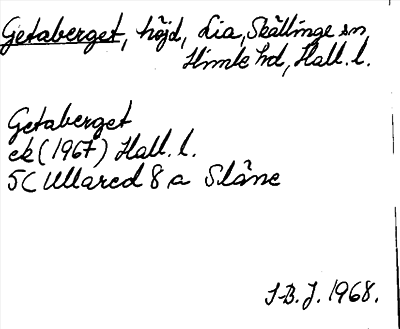 Getaberget, höjd, Lia, Skällinge sn,
Himle hd, Hall. l.
Getaberget
ek (1967) Hall. l.
5C Ullared 8 a Släne
I-B. J. 1968.